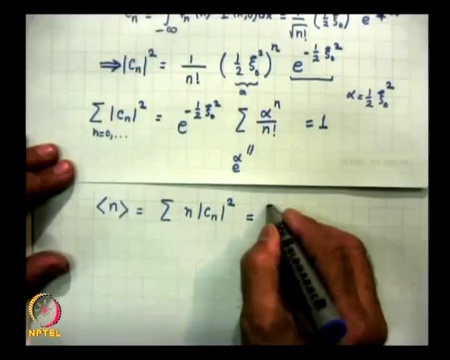 Cn = ∫-∞ (x) Ψ(x,0) dx = 1/√n! (1/2 ξ0²) e
⇒ |Cn|² = 1/n! (1/2 ξ0²)^n e^(-1/2 ξ0²)
α α = 1/2 ξ0²
Σ |Cn|² = e^(-1/2 ξ0²) Σ α^n/n! = 1
n=0,...
e^α
⟨n⟩ = Σ n |Cn|² =
NPTEL